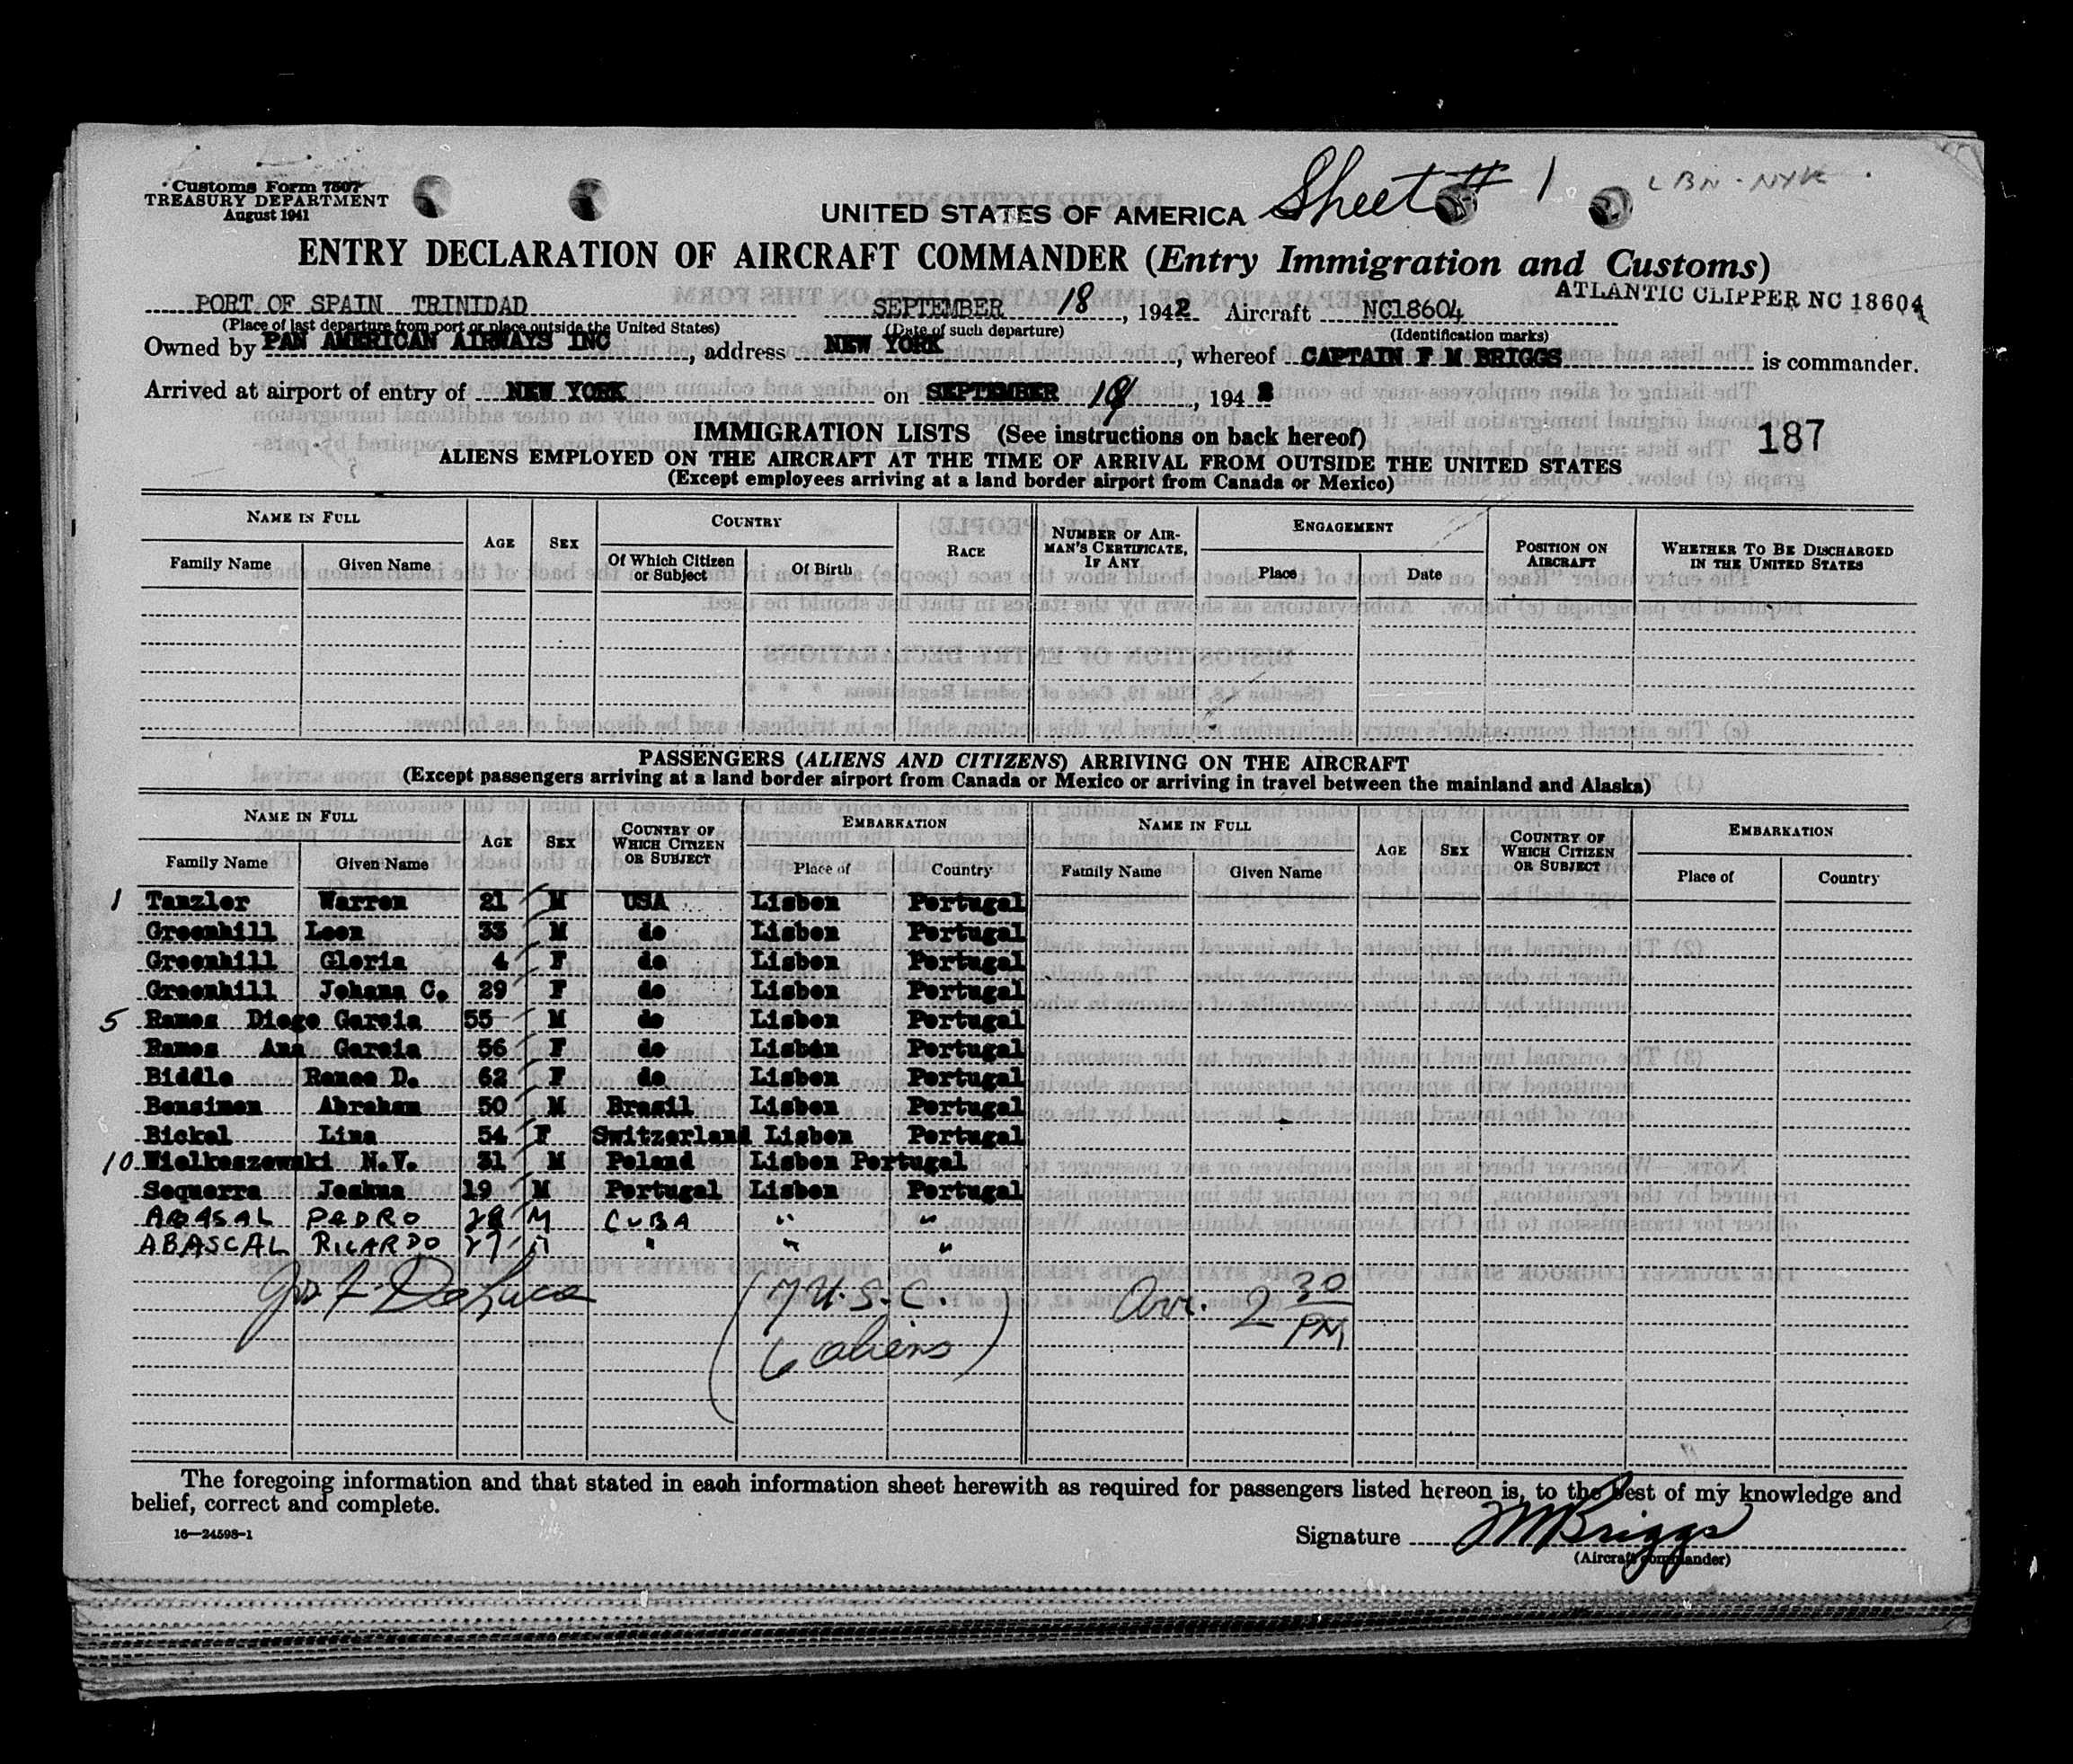 Customs Form 7507
TREASURY DEPARTMENT
August 1941
Sheet # 1
LBN - NYK
UNITED STATES OF AMERICA
ENTRY DECLARATION OF AIRCRAFT COMMANDER (Entry Immigration and Customs)
ATLANTIC CLIPPER NC 18604
PORT OF SPAIN TRINIDAD SEPTEMBER 18, 1942 Aircraft NC18604
(Place of last departure from port or place outside the United States) (Date of such departure) (Identification marks)
Owned by PAN AMERICAN AIRWAYS INC, address NEW YORK, whereof CAPTAIN F M BRIGGS is commander.
Arrived at airport of entry of NEW YORK on SEPTEMBER 19, 1942
187
IMMIGRATION LISTS (See instructions on back hereof)
ALIENS EMPLOYED ON THE AIRCRAFT AT THE TIME OF ARRIVAL FROM OUTSIDE THE UNITED STATES
(Except employees arriving at a land border airport from Canada or Mexico)
NAME IN FULL AGE SEX COUNTRY RACE NUMBER OF AIRMAN'S CERTIFICATE, IF ANY ENGAGEMENT POSITION ON AIRCRAFT WHETHER TO BE DISCHARGED IN THE UNITED STATES
Family Name Given Name Of Which Citizen or Subject Of Birth Place Date
PASSENGERS (ALIENS AND CITIZENS) ARRIVING ON THE AIRCRAFT
(Except passengers arriving at a land border airport from Canada or Mexico or arriving in travel between the mainland and Alaska)
NAME IN FULL AGE SEX COUNTRY OF WHICH CITIZEN OR SUBJECT EMBARKATION NAME IN FULL AGE SEX COUNTRY OF WHICH CITIZEN OR SUBJECT EMBARKATION
Family Name Given Name Place of Country Family Name Given Name Place of Country
1 Tanzler Warren 21 M USA Lisbon Portugal
Greenhill Leon 33 M do Lisbon Portugal
Greenhill Gloria 4 F do Lisbon Portugal
Greenhill Johana C. 29 F do Lisbon Portugal
5 Ramos Diego Garcia 55 M do Lisbon Portugal
Ramos Ana Garcia 56 F do Lisbon Portugal
Biddle Renee D. 62 F do Lisbon Portugal
Bensimon Abraham 50 M Brasil Lisbon Portugal
Bickel Lina 54 F Switzerland Lisbon Portugal
10 Wielkoszewski N.V. 31 M Poland Lisbon Portugal
Sequerra Joshua 19 M Portugal Lisbon Portugal
ABASAL PEDRO 28 M CUBA " "
ABASCAL RICARDO 27 M " " "
(7 U.S.C. Arr. 2 30 PM
6 aliens)
The foregoing information and that stated in each information sheet herewith as required for passengers listed hereon is, to the best of my knowledge and
belief, correct and complete.
16—24598-1
Signature F M Briggs
(Aircraft commander)